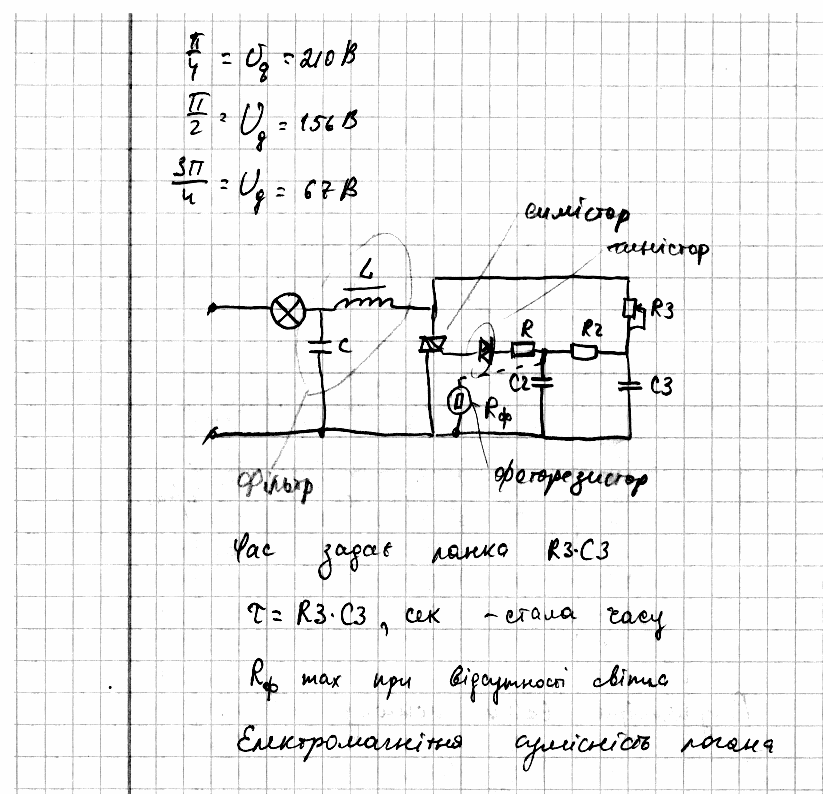 π/4 = Uд = 210 В
π/2 = Uд = 156 В
3π/4 = Uд = 67 В
симістор
диністор
L
R3
R
R2
C
C2
C3
Rф
Фільтр
фоторезистор
Час задає ланка R3·C3
τ = R3·C3, сек - стала часу
Rф max при відсутності світла
Електромагнітня сумісність погана